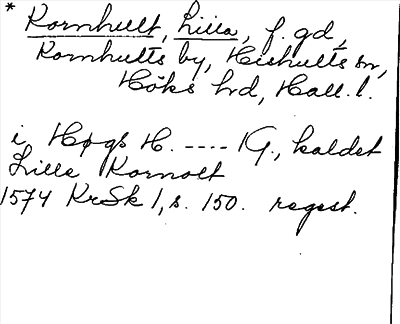 * Kornhult, Lilla, f. gd,
Kornhults by, Hishults sn,
Höks hd, Hall. l.
i Høgs H. ---- 1 G., kaldet
Lille Kornolt
1574 KrSk 1, s. 150. regest.